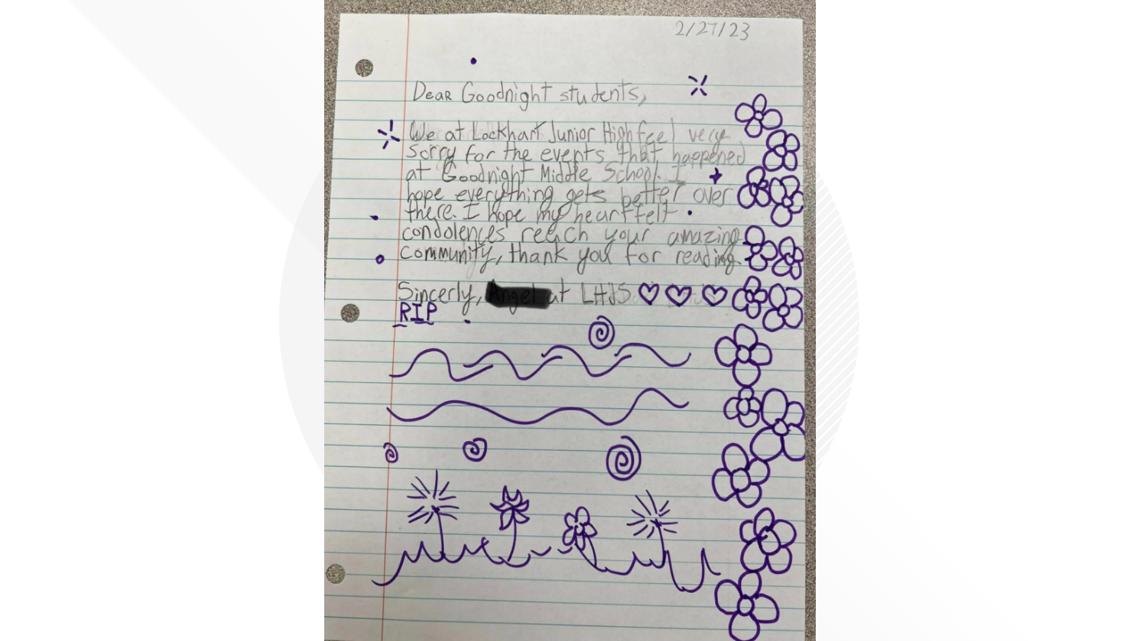 2/27/23
Dear Goodnight students,
We at Lockhart Junior High feel very
sorry for the events that happened
at Goodnight Middle School. I
hope everything gets better over
there. I hope my heartfelt
condolences reach your amazing
community, thank you for reading.
Sincerly, at LHJS
RIP